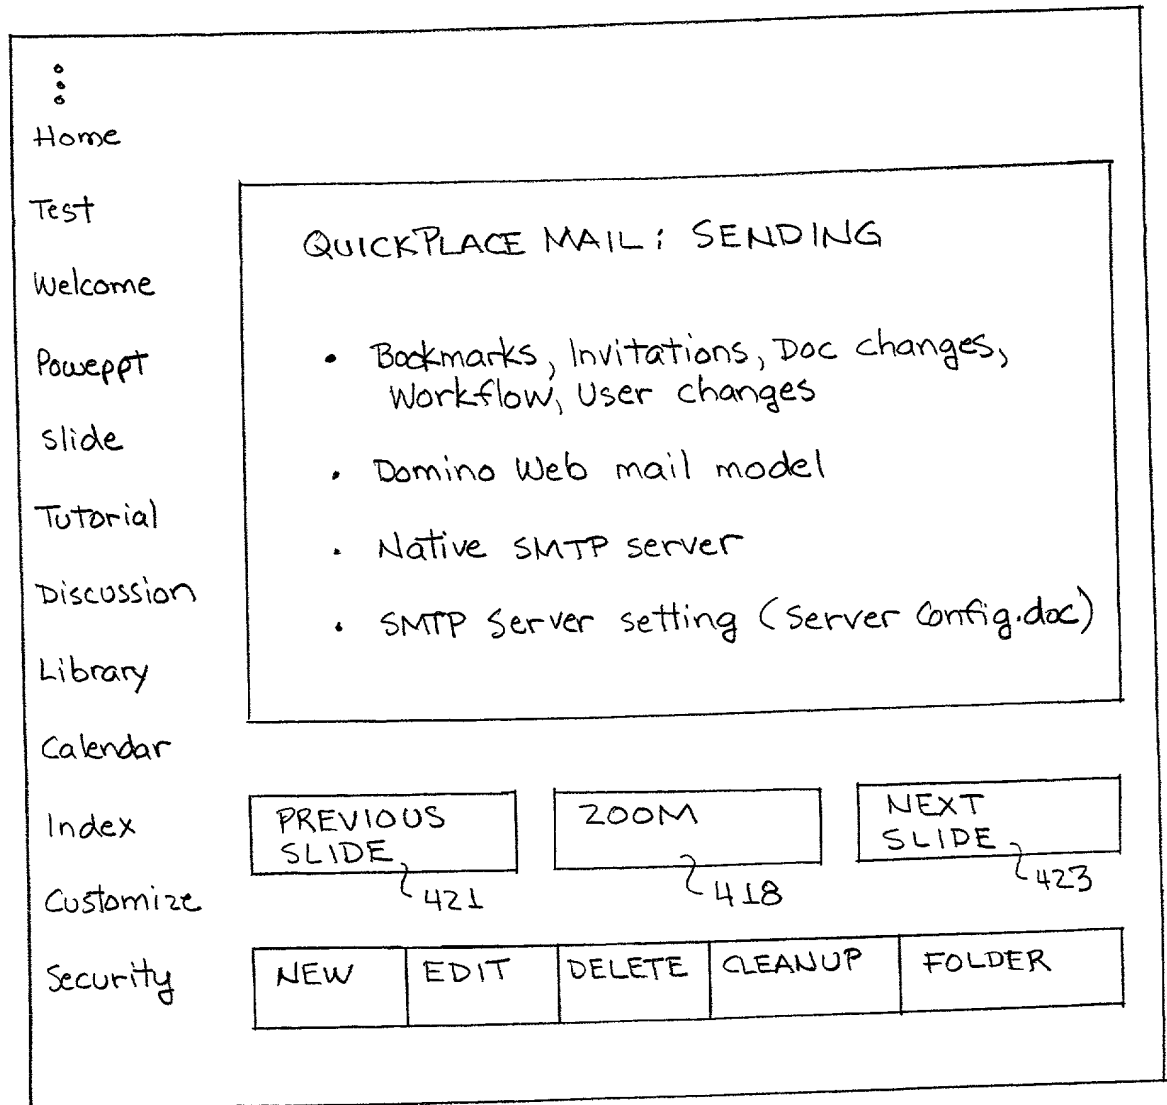 Home
Test
Welcome
Poweppt
Slide
Tutorial
Discussion
Library
Calendar
Index
Customize
Security
QUICKPLACE MAIL: SENDING
• Bookmarks, Invitations, Doc changes,
Workflow, User changes
• Domino Web mail model
• Native SMTP server
• SMTP Server setting (Server Config.doc)
PREVIOUS
SLIDE
421
ZOOM
418
NEXT
SLIDE
423
NEW EDIT DELETE CLEANUP FOLDER